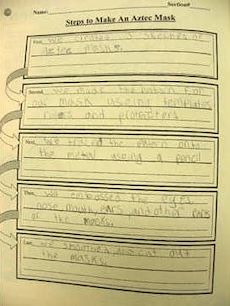 Name: Section#
Steps to Make An Aztec Mask
First, we created 3 sketches of
aztec masks.
Second, we made the pattern for
our mask useing templates
and protracters
Next, we traced the patern onto
the metal using a pencil
Then, we embossed the eyes,
nose, mouth, ears, and other parts
of the masks.
Last, we out
the masks.